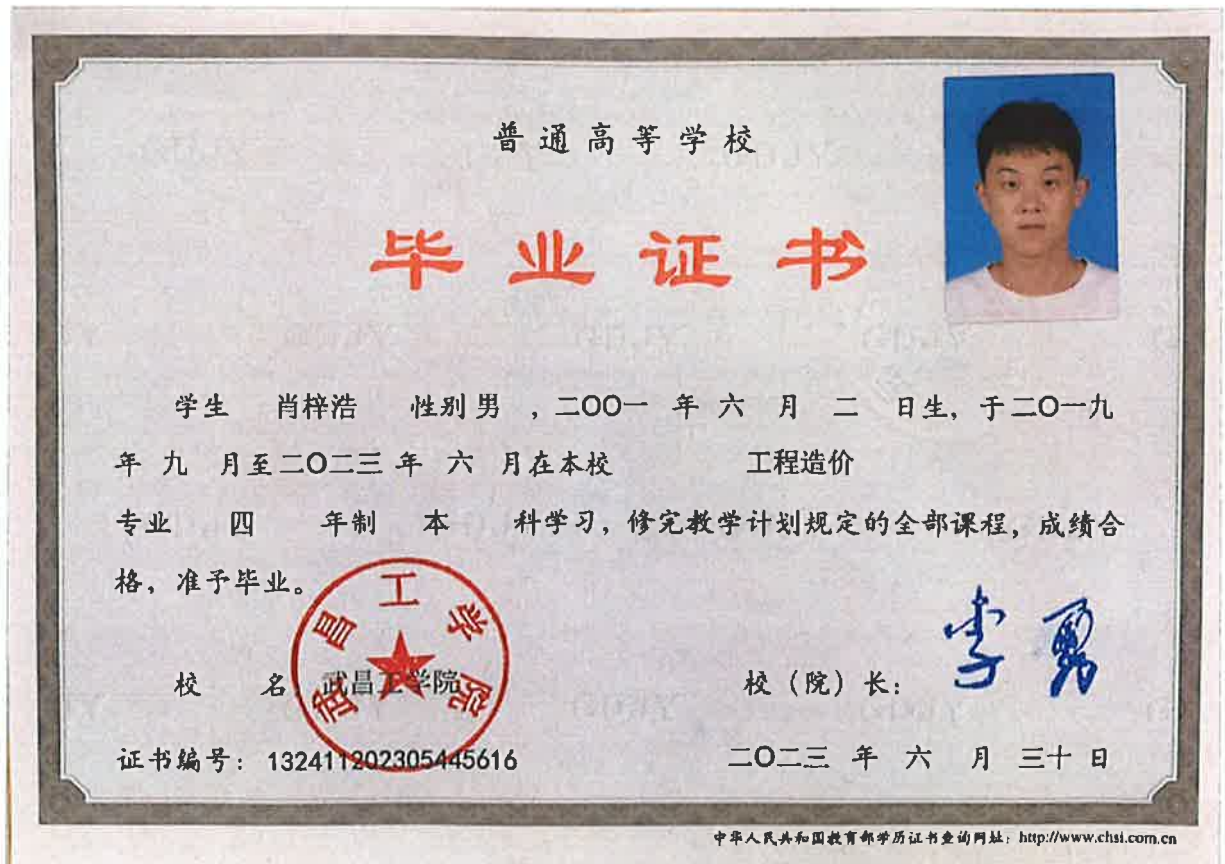 普通高等学校
毕业证书
学生 肖梓浩 性别 男 ，二〇〇一 年 六 月 二 日生，于二〇一九
年 九 月至二〇二三 年 六 月在本校 工程造价
专业 四 年制 本 科学习，修完教学计划规定的全部课程，成绩合
格，准予毕业。
武昌工学院
校 名：武昌工学院 校（院）长： 李勇
证书编号：132411202305445616 二〇二三 年 六 月 三十 日
中华人民共和国教育部学历证书查询网址：http://www.chsi.com.cn